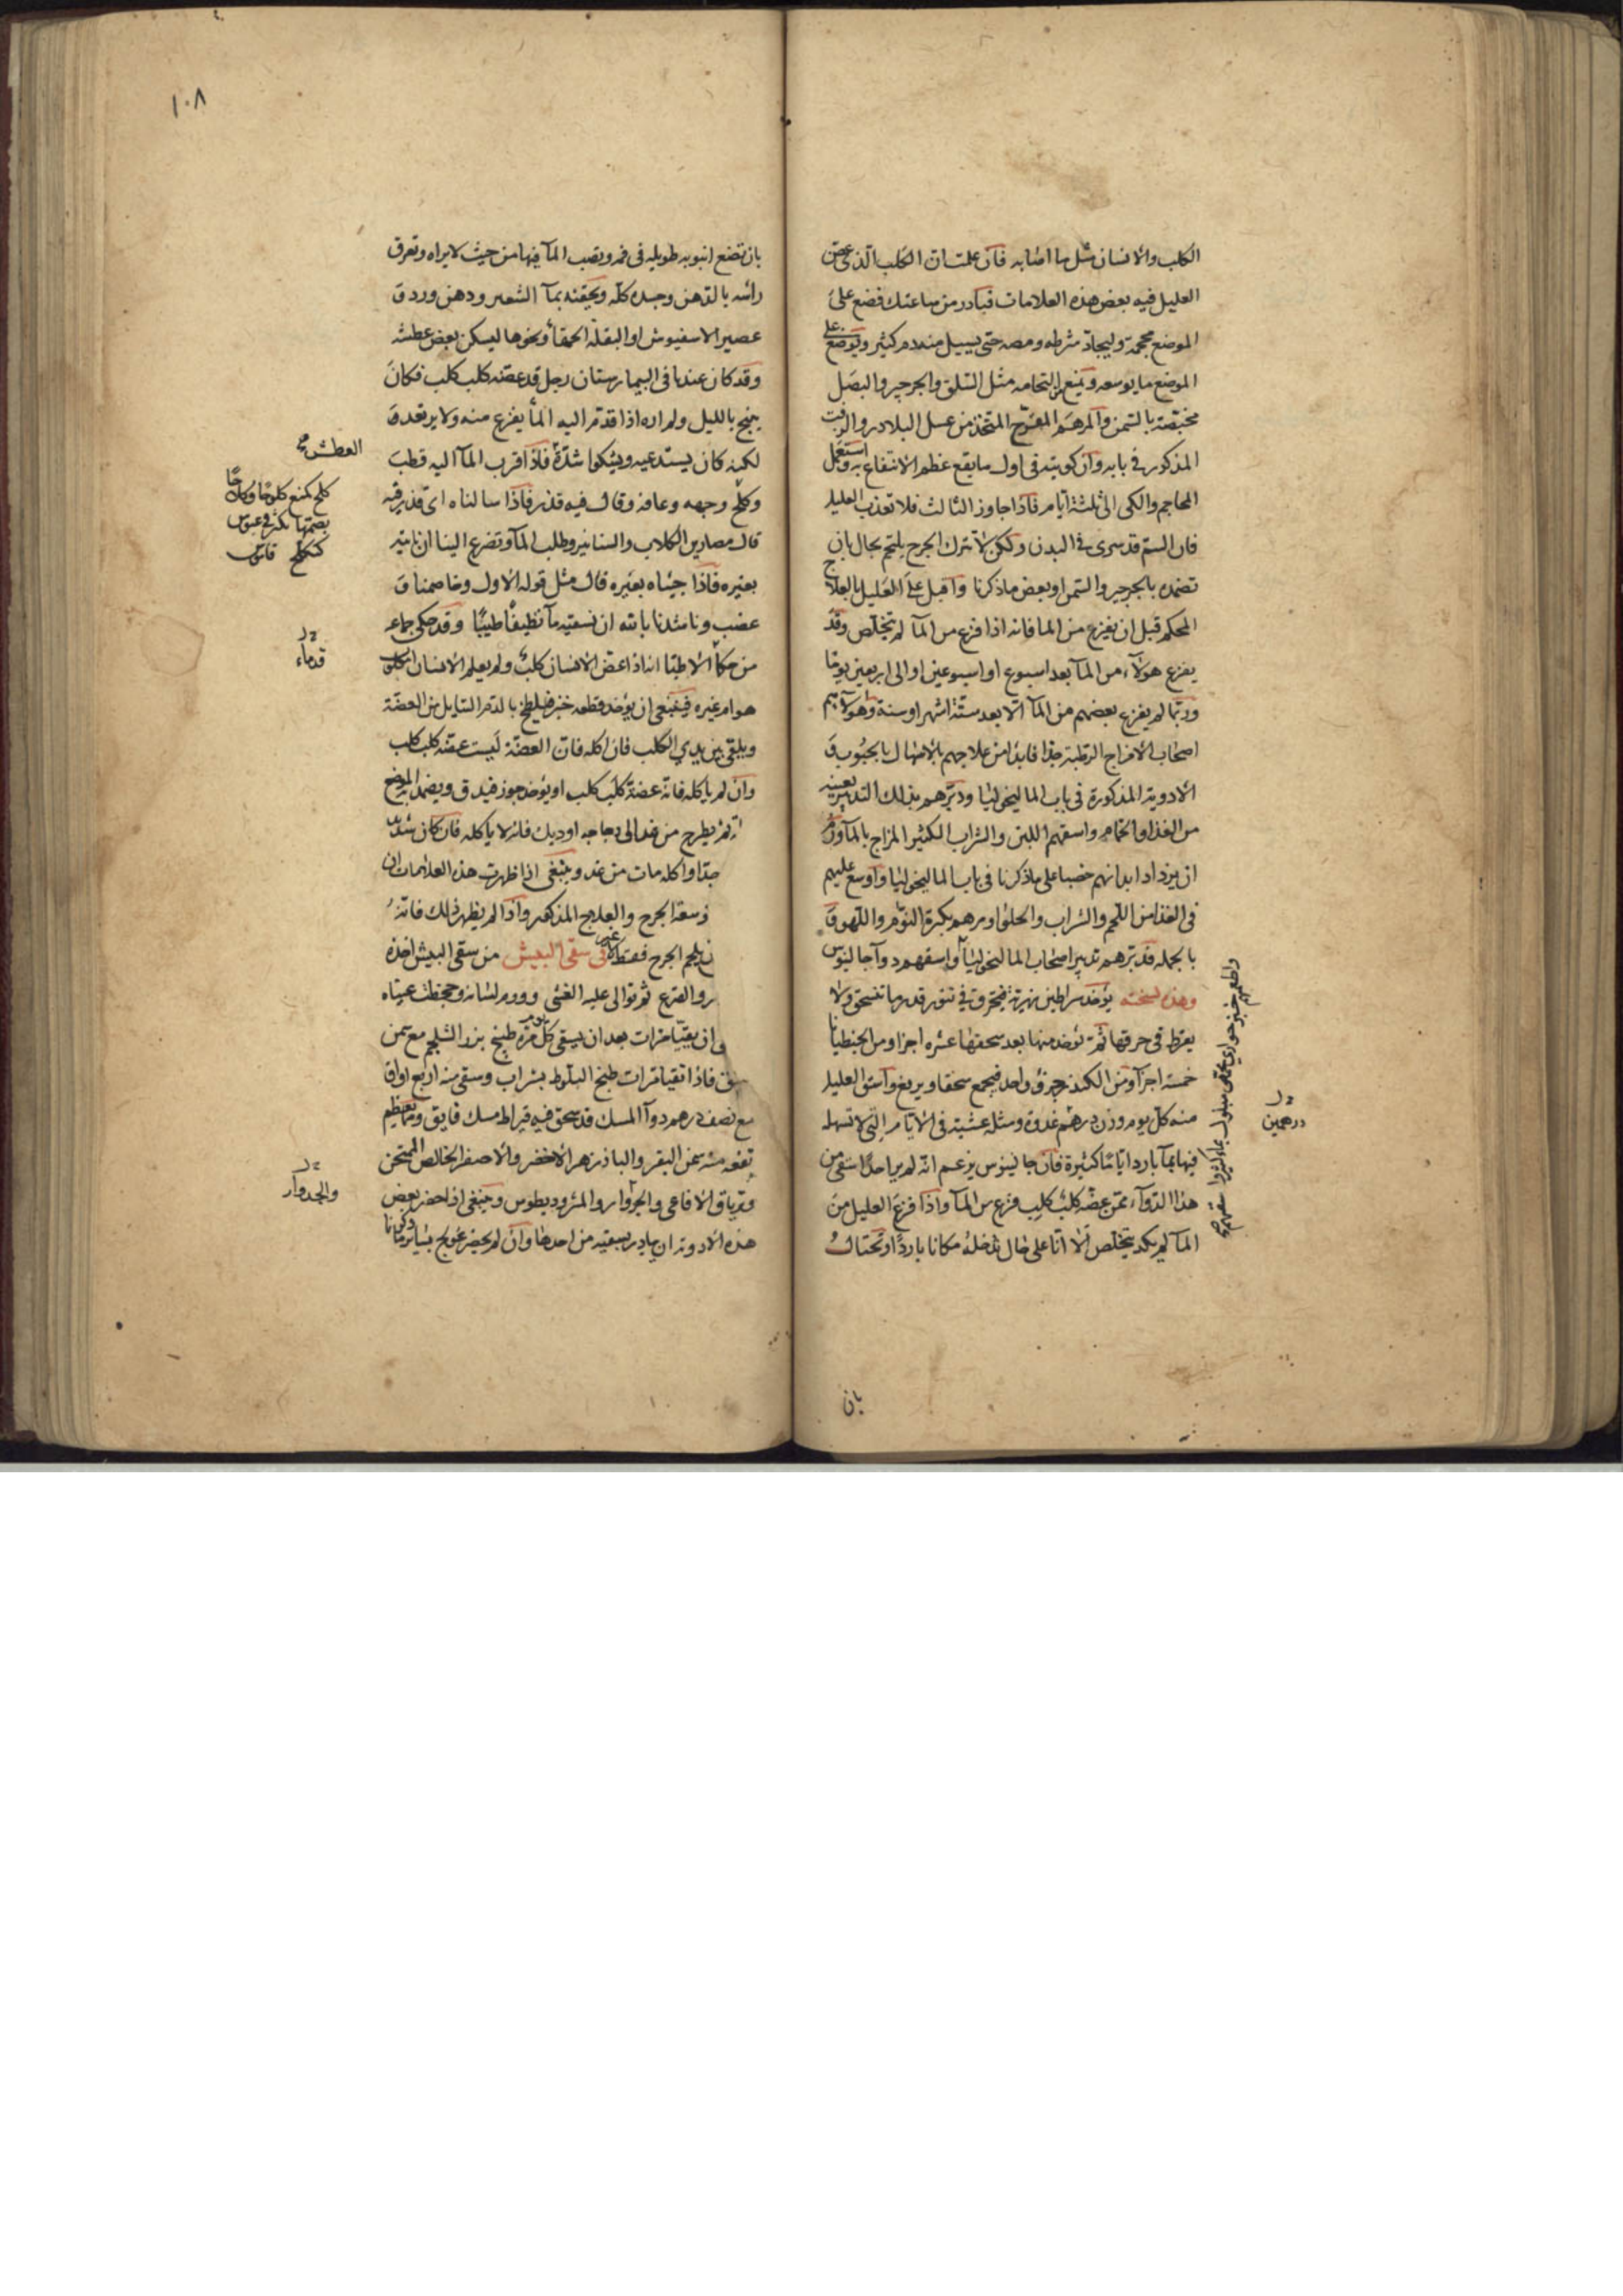 الكلب والانسان مثل ما اصابه فان علمت ان الكلب الذى عض
العليل فيه بعض هذه العلامات فبادر من ساعتك فضع على
الموضع محجمة وليجاد شرطه ومصه حتى يسيل منه دم كثير ويوضع على
الموضع ما يوسعه ويمنع التحامه مثل السلق والجرجير والبصل
مخبصة بالسمن والمرهم المقرح المتخذ من عسل البلادر والزفت
المذكور فى بابه وان كويته فى اول ما يقع عظم الانتفاع به واستعمل
المحاجم والكى الى ثلثة ايام فاذا جاوز الثالث فلا تعذب العليل
فان السم قد سرى فى البدن ولكن لا تترك الجرح يلتحم بحال بان
تضمده بالجرجير والسمن او بعض ما ذكرنا واقبل على العليل بالعلاج
المحكم قبل ان يفزع من الما فانه اذا فزع من المآ لم يتخلص وقد
يفزع هولآء من المآ بعد اسبوع او اسبوعين او الى اربعين يوما
وربما لم يفزع بعضهم من المآ الا بعد ستة اشهر او سنة وهولآء هم
اصحاب الامزاج الرطبة جدا فابدا من علاجهم بالاسهال بالحبوب و
الادوية المذكورة فى باب الماليخوليا ودبرهم بذلك التدبير بعينه
من الغذا والحمام واسقهم اللبن والشراب الكثير المزاج بالمآ ورم
ان يزداد ابدانهم خصبا على ما ذكرنا فى باب الماليخوليا واوسع عليهم
فى الغذا من اللحم والشراب والحلوا ومرهم بكثرة النوم واللهو و
بالجملة فدبرهم تدبير اصحاب الماليخوليا واسقهم دوآ جالينوس
وهذه نسخته يؤخذ سراطين نهرية فتحرق فى تنور قدر ما تنسحق ولا
يفرط فى حرقها ثم يؤخذ منها بعد سحقها عشرة اجزا ومن الجنطيانا
خمسة اجزآ ومن الكندر جزؤ واحد فيجمع سحقا ويرفع واسق العليل
منه كل يوم وزن درهم غدوة ومثله عشية فى الايام التى لا تسهله
فيها بمآ بارد اياما كثيرة فان جالينوس يزعم انه لم ير احدا سقى من
هذا الدوآء ممن عضه كلب كلب فزع من المآ واذا فزع العليل من
المآ لم يكد يتخلص الا انا على حال ندخله مكانا باردا ونحتال
درهمين
بان
١٠٨
بان تضع انبوبه طويله فى فمه ويصب المآ فيها من حيث لا يراه وتعرق
راسه بالدهن وجسده كله ويحقنه بمآ الشعير ودهن ورد و
عصير الاسفيوش او البقلة الحمقا ونحوها ليسكن بعض عطشه
وقد كان عندنا فى البيمارستان رجل قد عضه كلب كلب فكان
ينبح بالليل ولم اره اذا قدم اليه المآ يفزع منه ولا يرتعد و
لكنه كان يستدعيه ويشكوا شدة فاذا قرب المآ اليه قطب
وكلح وجهه وعافه وقال فيه قذر فاذا سالناه اى قذر فيه
قال مصارين الكلاب والسنانير وطلب المآ وتضرع الينا ان ناتيه
بغيره فاذا جيناه بغيره قال مثل قوله الاول وخاصمنا و
غضب وناشدنا بالله ان نسقيه مآ نظيفا طيبا وقد حكى جماعه
من حكمآ الاطبا انه اذا عض الانسان كلب ولم يعلم الانسان اكلب
هو ام غيره فينبغى ان يؤخذ قطعه خبز فيلطخ بالدم السايل من العضة
ويلقى بين يدي الكلب فان اكله فان العضة ليست عضه كلب كلب
وان لم ياكله فانه عضة كلب كلب او يؤخذ جوز فيدق ويضمد
ثم يطرح من غد الى دجاجه او ديك فانه لا ياكله فان كان شديد
جدا واكله مات من غد وينبغى اذا ظهرت هذه العلامات ان
توسعة الجرح والعلاج المذكور واذا لم يظهر ذلك فانه
يلحم الجرح فقط فى سقى البيش من سقى البيش اخذه
والصرع ثم توالى عليه الغشى وورم لسانه وجحظت عيناه
ان يقيا مرات بعد ان يسقى كل يوم مرة طبيخ بزر الشلجم مع سمن
فاذا تقيا مرات طبخ البلوط بشراب وسقى منه اربع اواق
مع نصف درهم دوآ المسك قد سحق فيه قيراط مسك فايق ومما يعظم
نفعه منه سمن البقر والباذزهر الاخضر والاصفر الخالص الممتحن
وترياق الافاعى والجزوار والمثروديطوس وينبغى اذا حضر بعض
هذه الادوية ان يبادر بسقيه من احدها وان لم يحضر عولج بساير ما ذكرنا
العطش صح
كلح كمنع كلوحا وكلاحا
بضمهما تكشر فى عبوس
كتكلح قاموس
قدماء
والجدوار